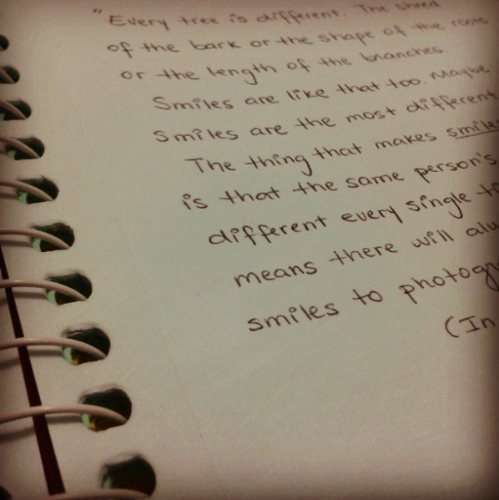 "Every tree is different. The
of the bark or the shape of the roots
or the length of the branches.
Smiles are like that too. Maybe
smiles are the most different
The thing that makes smiles
is that the same person's
different every single
means there will
smiles to
(In